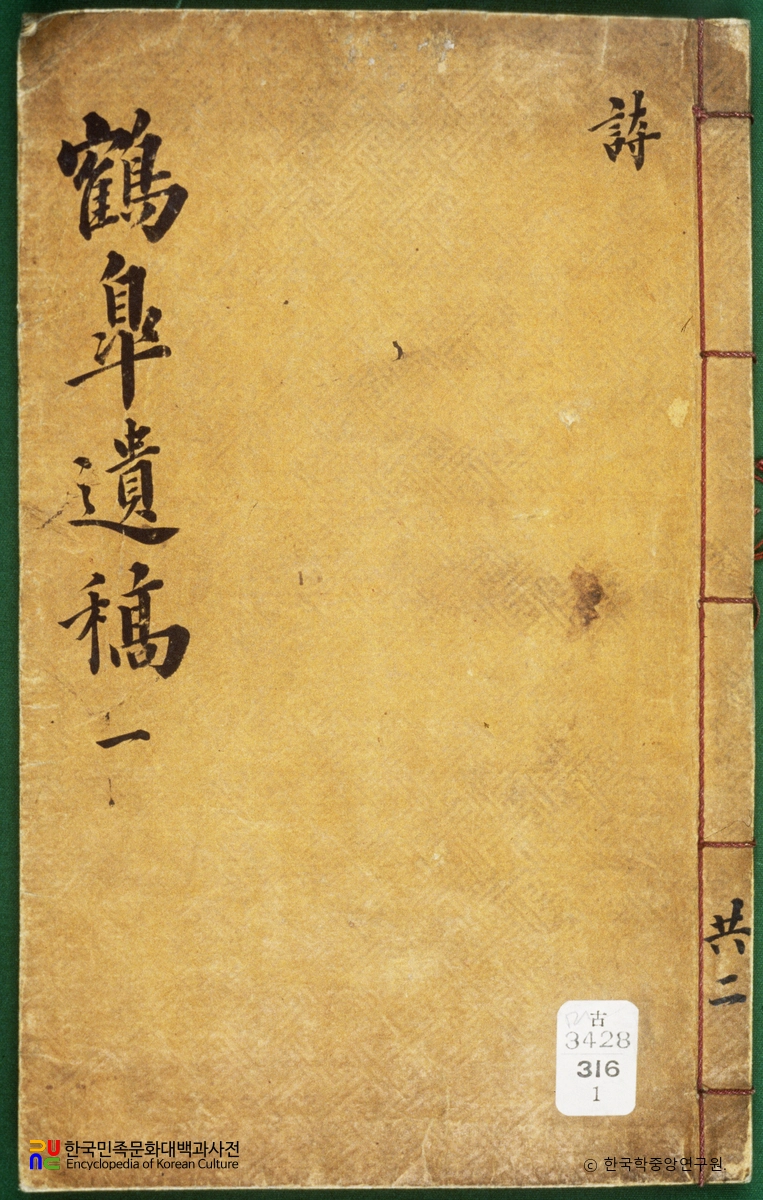 詩
鶴皐遺稿 一
共二
古
3428
316
1
한국민족문화대백과사전
Encyclopedia of Korean Culture
© 한국학중앙연구원